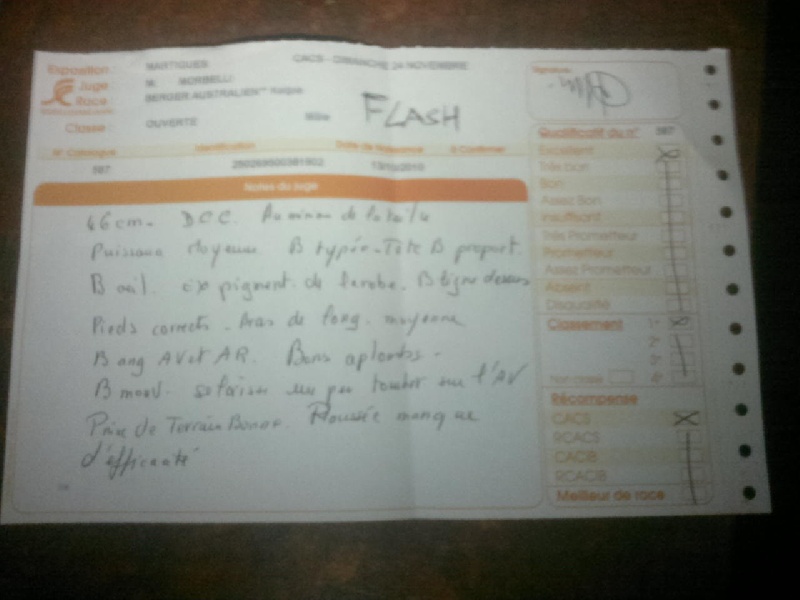 Exposition : MARTIGUES CACS - DIMANCHE 24 NOVEMBRE
Juge M. MORBELLI
Race : BERGER AUSTRALIEN
Classe : OUVERTE Mâle FLASH
N° Catalogue Identification Date de Naissance à Confirmer
597 13/10/2010
Notes du juge
46 cm - DCC. Au minim de la taille
Puissance Moyenne. B typée - Tête B proport.
B œil. ex pigment. de la robe. B ligne dessus
Pieds corrects. Bras de long. moyenne
B ang AV et AR. Bons aplombs -
B mouv. un peu tomber sur l'AV
Prise de Terrain Bonne. Poussée manque
d'efficacité
Signature :
Qualificatif du n° 597
Excellent
Très bon
Bon
Assez Bon
Insuffisant
Très Prometteur
Prometteur
Assez Prometteur
Absent
Disqualifié
Classement 1er
2e
3e
Non classé 4e
Récompense
CACS
RCACS
CACIB
RCACIB
Meilleur de race